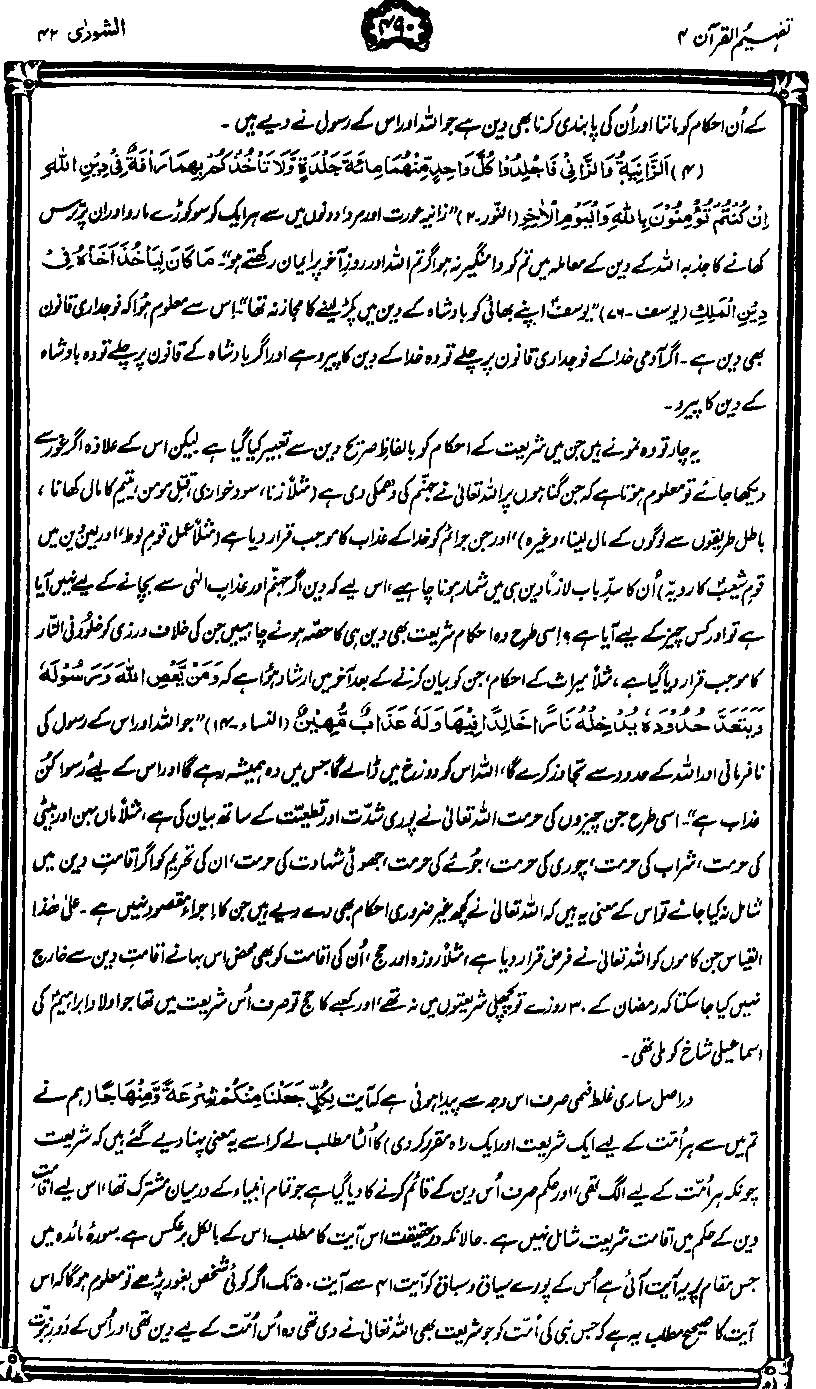 تفہیم القرآن ۴
۴۹۰
الشوریٰ ۴۲
کے اُن احکام کو ماننا اور اُن کی پابندی کرنا بھی دین ہے جو اللہ اور اس کے رسول نے دیے ہیں۔
(۴) اَلزَّانِيَةُ وَالزَّانِيْ فَاجْلِدُوْا كُلَّ وَاحِدٍ مِّنْهُمَا مِائَةَ جَلْدَةٍ وَّلَا تَاْخُذْكُمْ بِهِمَا رَاْفَةٌ فِيْ دِيْنِ اللهِ
اِنْ كُنْتُمْ تُؤْمِنُوْنَ بِاللهِ وَالْيَوْمِ الْاٰخِرِ (النور-۲) ”زانیہ عورت اور مرد دونوں میں سے ہر ایک کو سو کوڑے مارو اور ان پر ترس
کھانے کا جذبہ اللہ کے دین کے معاملہ میں تم کو دامنگیر نہ ہو اگر تم اللہ اور روزِ آخر پر ایمان رکھتے ہو“۔ مَا كَانَ لِيَاْخُذَ اَخَاهُ فِيْ
دِيْنِ الْمَلِكِ (یوسف-۷۶) ”یوسفؑ اپنے بھائی کو بادشاہ کے دین میں پکڑ لینے کا مجاز نہ تھا“۔ اِس سے معلوم ہُوا کہ فوجداری قانون
بھی دین ہے۔ اگر آدمی خدا کے فوجداری قانون پر چلے تو وہ خدا کے دین کا پیرو ہے اور اگر بادشاہ کے قانون پر چلے تو وہ بادشاہ
کے دین کا پیرو۔
یہ چار تو وہ نمونے ہیں جن میں شریعت کے احکام کو بالفاظِ صریح دین سے تعبیر کیا گیا ہے لیکن اس کے علاوہ اگر غور سے
دیکھا جائے تو معلوم ہوتا ہے کہ جن گناہوں پر اللہ تعالیٰ نے جہنم کی دھمکی دی ہے (مثلاً زنا، سود خواری، قتلِ مومن، یتیم کا مال کھانا،
باطل طریقوں سے لوگوں کے مال لینا، وغیرہ)، اور جن جرائم کو خدا کے عذاب کا موجب قرار دیا ہے (مثلاً عملِ قومِ لوط، اور لین دین میں
قومِ شعیبؑ کا رویہ) اُن کا سدِّ باب لازماً دین ہی میں شمار ہونا چاہیے، اس لیے کہ دین اگر جہنم اور عذابِ الٰہی سے بچانے کے لیے نہیں آیا
ہے تو اور کس چیز کے لیے آیا ہے؟ اسی طرح وہ احکام شریعت بھی دین ہی کا حصہ ہونے چاہییں جن کی خلاف ورزی کو خلود فی النار
کا موجب قرار دیا گیا ہے، مثلاً میراث کے احکام، جن کو بیان کرنے کے بعد آخر میں ارشاد ہوا ہے کہ وَمَنْ يَّعْصِ اللهَ وَرَسُوْلَهٗ
وَيَتَعَدَّ حُدُوْدَهٗ يُدْخِلْهُ نَارًا خَالِدًا فِيْهَا وَلَهٗ عَذَابٌ مُّهِيْنٌ (النساء-۱۴) ”جو اللہ اور اس کے رسول کی
نافرمانی اور اللہ کے حدود سے تجاوز کرے گا، اللہ اس کو دوزخ میں ڈالے گا جس میں وہ ہمیشہ رہے گا اور اس کے لیے رسوا کن
عذاب ہے“۔ اسی طرح جن چیزوں کی حرمت اللہ تعالیٰ نے پوری شدّت اور قطعیّت کے ساتھ بیان کی ہے، مثلاً ماں بہن اور بیٹی
کی حرمت، شراب کی حرمت، چوری کی حرمت، جوئے کی حرمت، جھوٹی شہادت کی حرمت، ان کی تحریم کو اگر اقامتِ دین میں
شامل نہ کیا جائے تو اس کے معنی یہ ہیں کہ اللہ تعالیٰ نے کچھ غیر ضروری احکام بھی دے دیے ہیں جن کا اجراء مقصود نہیں ہے۔ علیٰ ھٰذا
القیاس جن کاموں کو اللہ تعالیٰ نے فرض قرار دیا ہے، مثلاً روزہ اور حج، اُن کی اقامت کو بھی محض اس بہانے اقامتِ دین سے خارج
نہیں کیا جا سکتا کہ رمضان کے ۳۰ روزے تو پچھلی شریعتوں میں نہ تھے، اور کعبے کا حج تو صرف اُس شریعت میں تھا جو اولادِ ابراہیمؑ کی
اسماعیلی شاخ کو ملی تھی۔
دراصل ساری غلط فہمی صرف اس وجہ سے پیدا ہوئی ہے کہ آیت لِكُلٍّ جَعَلْنَا مِنْكُمْ شِرْعَةً وَّمِنْهَاجًا (ہم نے
تم میں سے ہر اُمّت کے لیے ایک شریعت اور ایک راہ مقرر کر دی) کا اُلٹا مطلب لے کر اسے یہ معنی پہنا دیے گئے ہیں کہ شریعت
چونکہ ہر اُمت کے لیے الگ تھی، اور حکم صرف اُس دین کے قائم کرنے کا دیا گیا ہے جو تمام انبیاء کے درمیان مشترک تھا، اس لیے اقامتِ
دین کے حکم میں اقامتِ شریعت شامل نہیں ہے۔ حالانکہ درحقیقت اس آیت کا مطلب اس کے بالکل برعکس ہے۔ سورۂ مائدہ میں
جس مقام پر یہ آیت آئی ہے اُس کے پورے سیاق و سباق کو آیت ۴۱ سے آیت ۵۰ تک اگر کوئی شخص بغور پڑھے تو معلوم ہوگا کہ اس
آیت کا صحیح مطلب یہ ہے کہ جس نبی کی اُمّت کو جو شریعت بھی اللہ تعالیٰ نے دی تھی وہ اُس اُمّت کے لیے دین تھی اور اُس کے دَورِ نبوّت